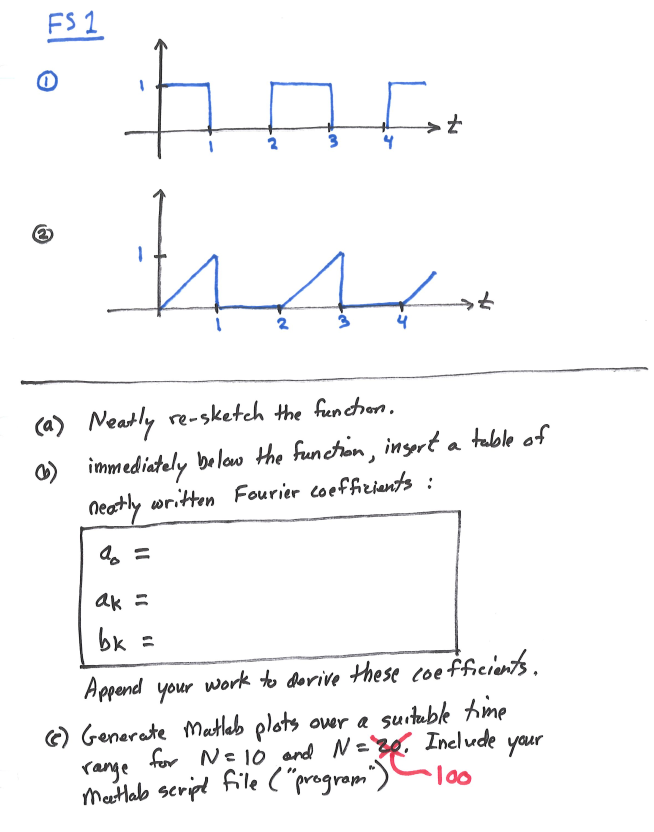 FS 1
①
1
t
1
2
3
4
②
1
t
1
2
3
4
(a) Neatly re-sketch the function.
(b) immediately below the function, insert a table of
neatly written Fourier coefficients :
a₀ =
ak =
bk =
Append your work to derive these coefficients.
(c) Generate Matlab plots over a suitable time
range for N = 10 and N = 20. Include your
100
Matlab script file ("program")